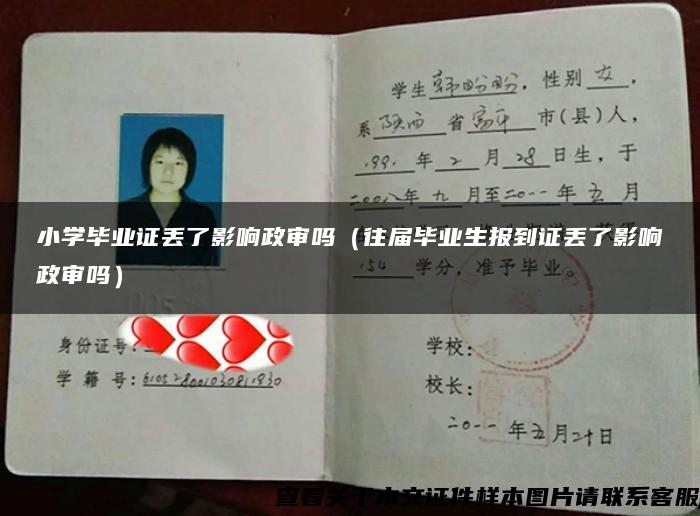 学生韩盼盼，性别女，
系陕西省富平市(县)人，
1991年2月28日生，于
二00八年九月至二0一一年五月
小学毕业证丢了影响政审吗（往届毕业生报到证丢了影响
政审吗）
154学分，准予毕业。
身份证号：
学籍号：
学校：
校长：
二0一一年五月二十日
查看关于本文证件样本图片请联系客服